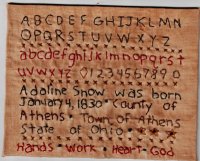 ABCDEFGHIJKLMN
OPQRSTUVWXYZ
abcdefghijklmnopqrst
uvwxyz 0123456789 0
Adaline Snow was born
January 4, 1830 · County of
Athens · Town of Athens
State of Ohio ·
Hands · Work · Heart · God